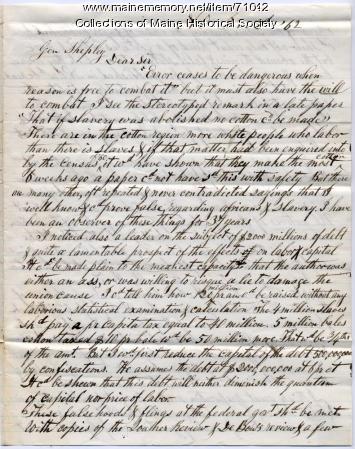 www.mainememory.net/item/71042
Collections of Maine Historical Society
'62
Gen Shepley
Dear Sir
"Error ceases to be dangerous when
reason is free to combat it" but it must also have the will
to combat. I see the stereotyped remark in a late paper
"That if slavery was abolished no cotton cd be made"
There are in the cotton region more white people who labor
than there is slaves & if that matter had been enquired into
by the census it wd have shown that they make the most
6 weeks ago a paper cd not have sd this with safety. But there
on many other, oft repeated & never contradicted sayings that I
well know & cd prove false, regarding africans & slavery. I have
been an observer of these things for 34 years
I noticed also a leader on the subject of $2000 millions of debt
& quite a lamentable prospect of the effects of on labor & capital
It cd be made plain to the meanest capacity that the author was
either an ass, or was willing to risque a lie to damage the
union cause I cd tell him how be raised without any
laborious statistical examination & calculation. The 4 million slaves
shd pay a pr capita tax equal to 40 million. 5 million bales
cotton taxed $10 pr bale wd be 50 million more. That wd be
of the amt. But I wd first reduce the capital of the debt 500,000,000
by confiscations. He assumes the debt at $2000,000,000 at 6 pr ct
It cd be shown that this debt will neither diminish the quantum
of capital nor price of labor
These falsehoods & flings at the federal govt shd be met
With copies of the Review & De Bow's review & a few